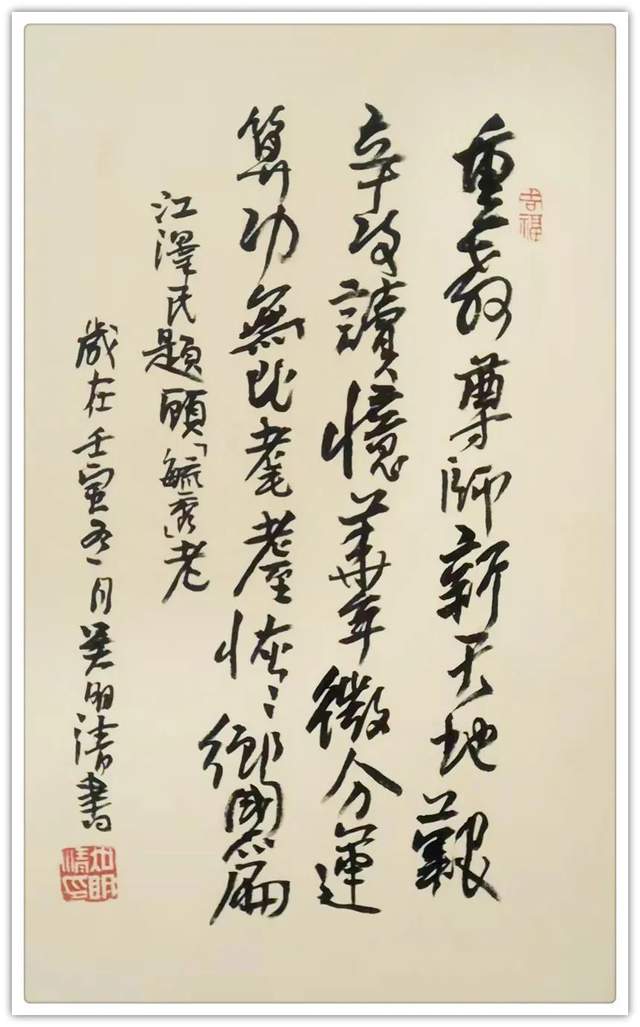 重教尊師新天地艱
辛攻讀憶華年微分運
算功無比耄耋恢々鄉國篇
江澤民題顧「毓秀」老
歲在壬寅冬月吳明清書